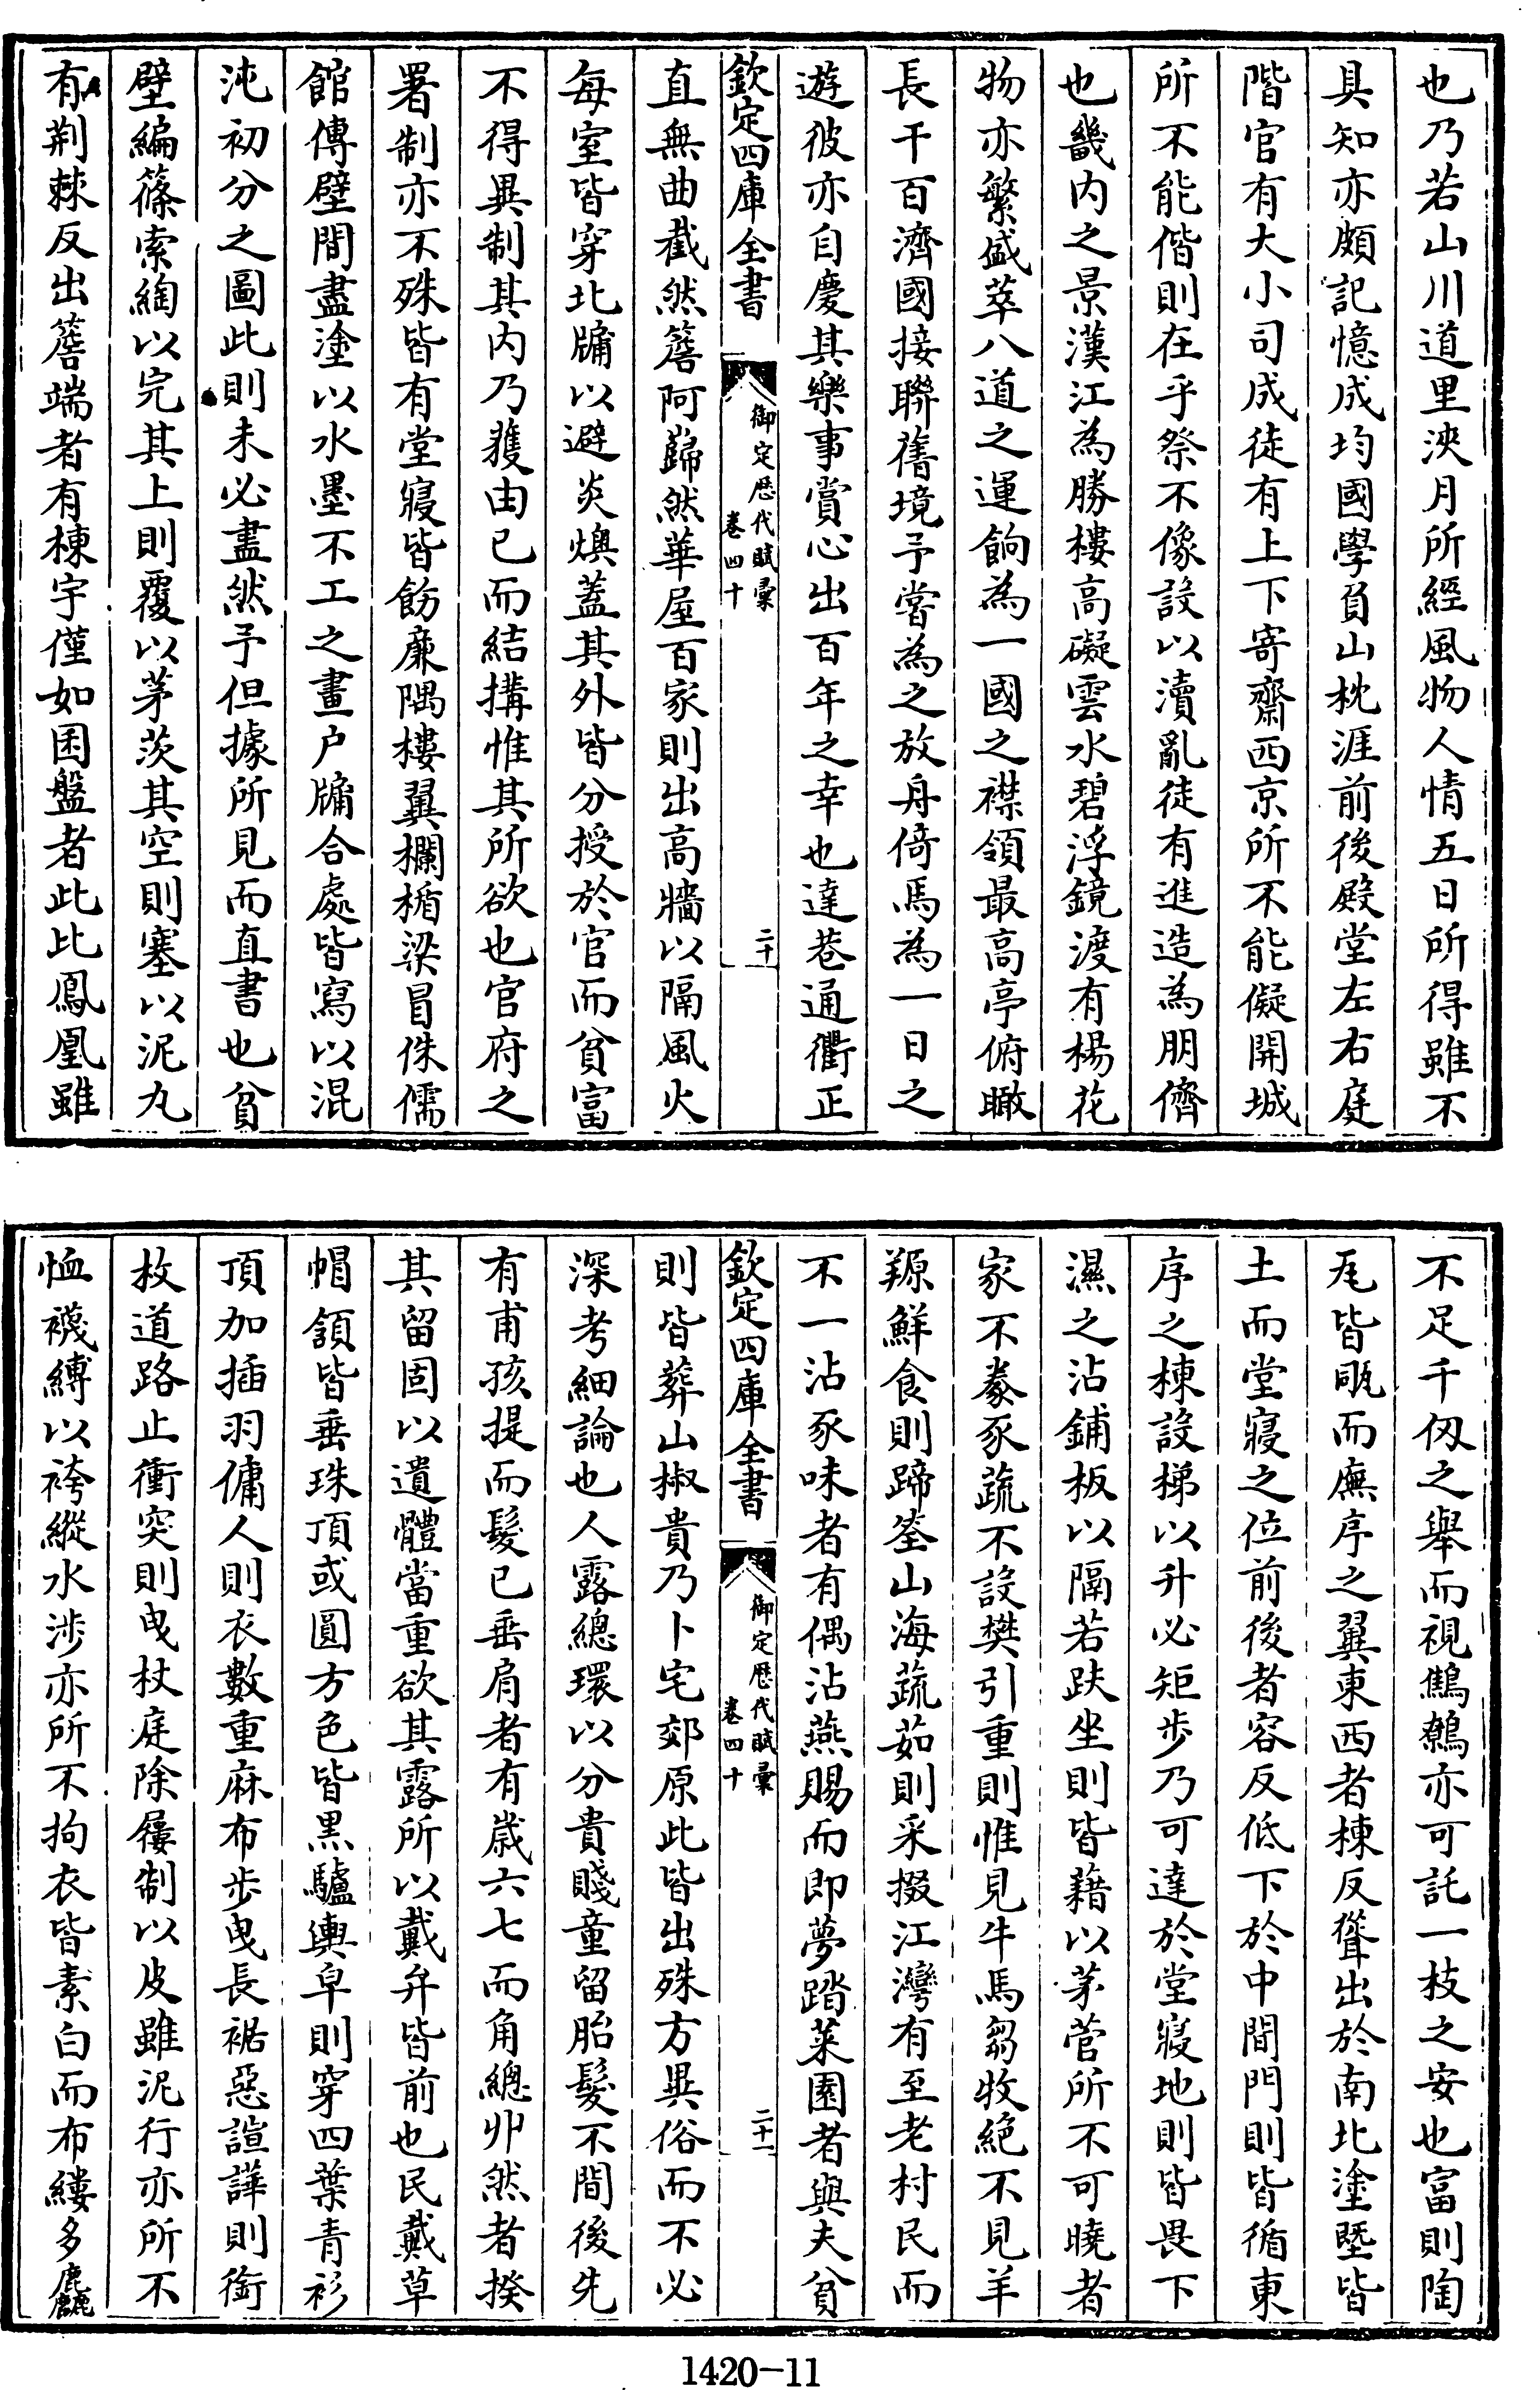 也乃若山川道里浹月所經風物人情五日所得雖不
具知亦頗記憶成均國學負山枕涯前後殿堂左右庭
階官有大小司成徒有上下寄齋西京所不能儗開城
所不能偕則在乎祭不像設以瀆亂徒有進造為朋儕
也畿内之景漢江為勝樓高礙雲水碧浮鏡渡有楊花
物亦繁盛萃八道之運餉為一國之襟領最高亭俯瞰
長干百濟國接聯舊境予嘗為之放舟倚馬為一日之
遊彼亦自慶其樂事賞心出百年之幸也達巷通衢正
欽定四庫全書
御定歷代賦彙
卷四十
二十
直無曲截然簷阿巋然華屋百家則出高牆以隔風火
每室皆穿北牖以避炎燠蓋其外皆分授於官而貧富
不得異制其内乃獲由已而結搆惟其所欲也官府之
署制亦不殊皆有堂寢皆飭廉隅樓翼欄楯梁冒侏儒
館傳壁間盡塗以水墨不工之畫户牖合處皆寫以混
沌初分之圖此則未必盡然予但據所見而直書也貧
壁編篠索綯以完其上則覆以茅茨其空則塞以泥丸
有荆棘反出簷端者有棟宇僅如囷盤者此比鳳凰雖
不足千仭之舉而視鷦鷯亦可託一枝之安也富則陶
瓦皆㼾而廡序之翼東西者棟反聳出於南北塗墍皆
土而堂寢之位前後者容反低下於中間門則皆循東
序之棟設梯以升必矩步乃可達於堂寢地則皆畏下
濕之沾鋪板以隔若趺坐則皆藉以茅菅所不可曉者
家不豢豕蔬不設樊引重則惟見牛馬芻牧絶不見羊
羱鮮食則蹄筌山海蔬茹則采掇江灣有至老村民而
不一沾豕味者有偶沾燕賜而即夢踏菜園者與夫貧
欽定四庫全書
御定歷代賦彙
卷四十
二十一
則皆葬山椒貴乃卜宅郊原此皆出殊方異俗而不必
深考細論也人露總環以分貴賤童留胎髮不間後先
有甫孩提而髮已垂肩者有歲六七而角總丱然者揆
其留固以遺體當重欲其露所以戴弁皆前也民戴草
帽頷皆垂珠頂或圓方色皆黒驢輿皁則穿四葉青衫
頂加插羽傭人則衣數重麻布步曳長裾惡諠譁則銜
枚道路止衝突則曵杖庭除屨制以皮雖泥行亦所不
恤襪縛以袴縱水涉亦所不拘衣皆素白而布縷多麤
1420-11